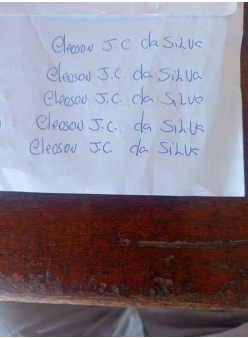 Cleoson J.C. da Silva
Cleoson J.C. da Silva
Cleoson J.C. da Silva
Cleoson J.C. da Silva
Cleoson J.C da Silva